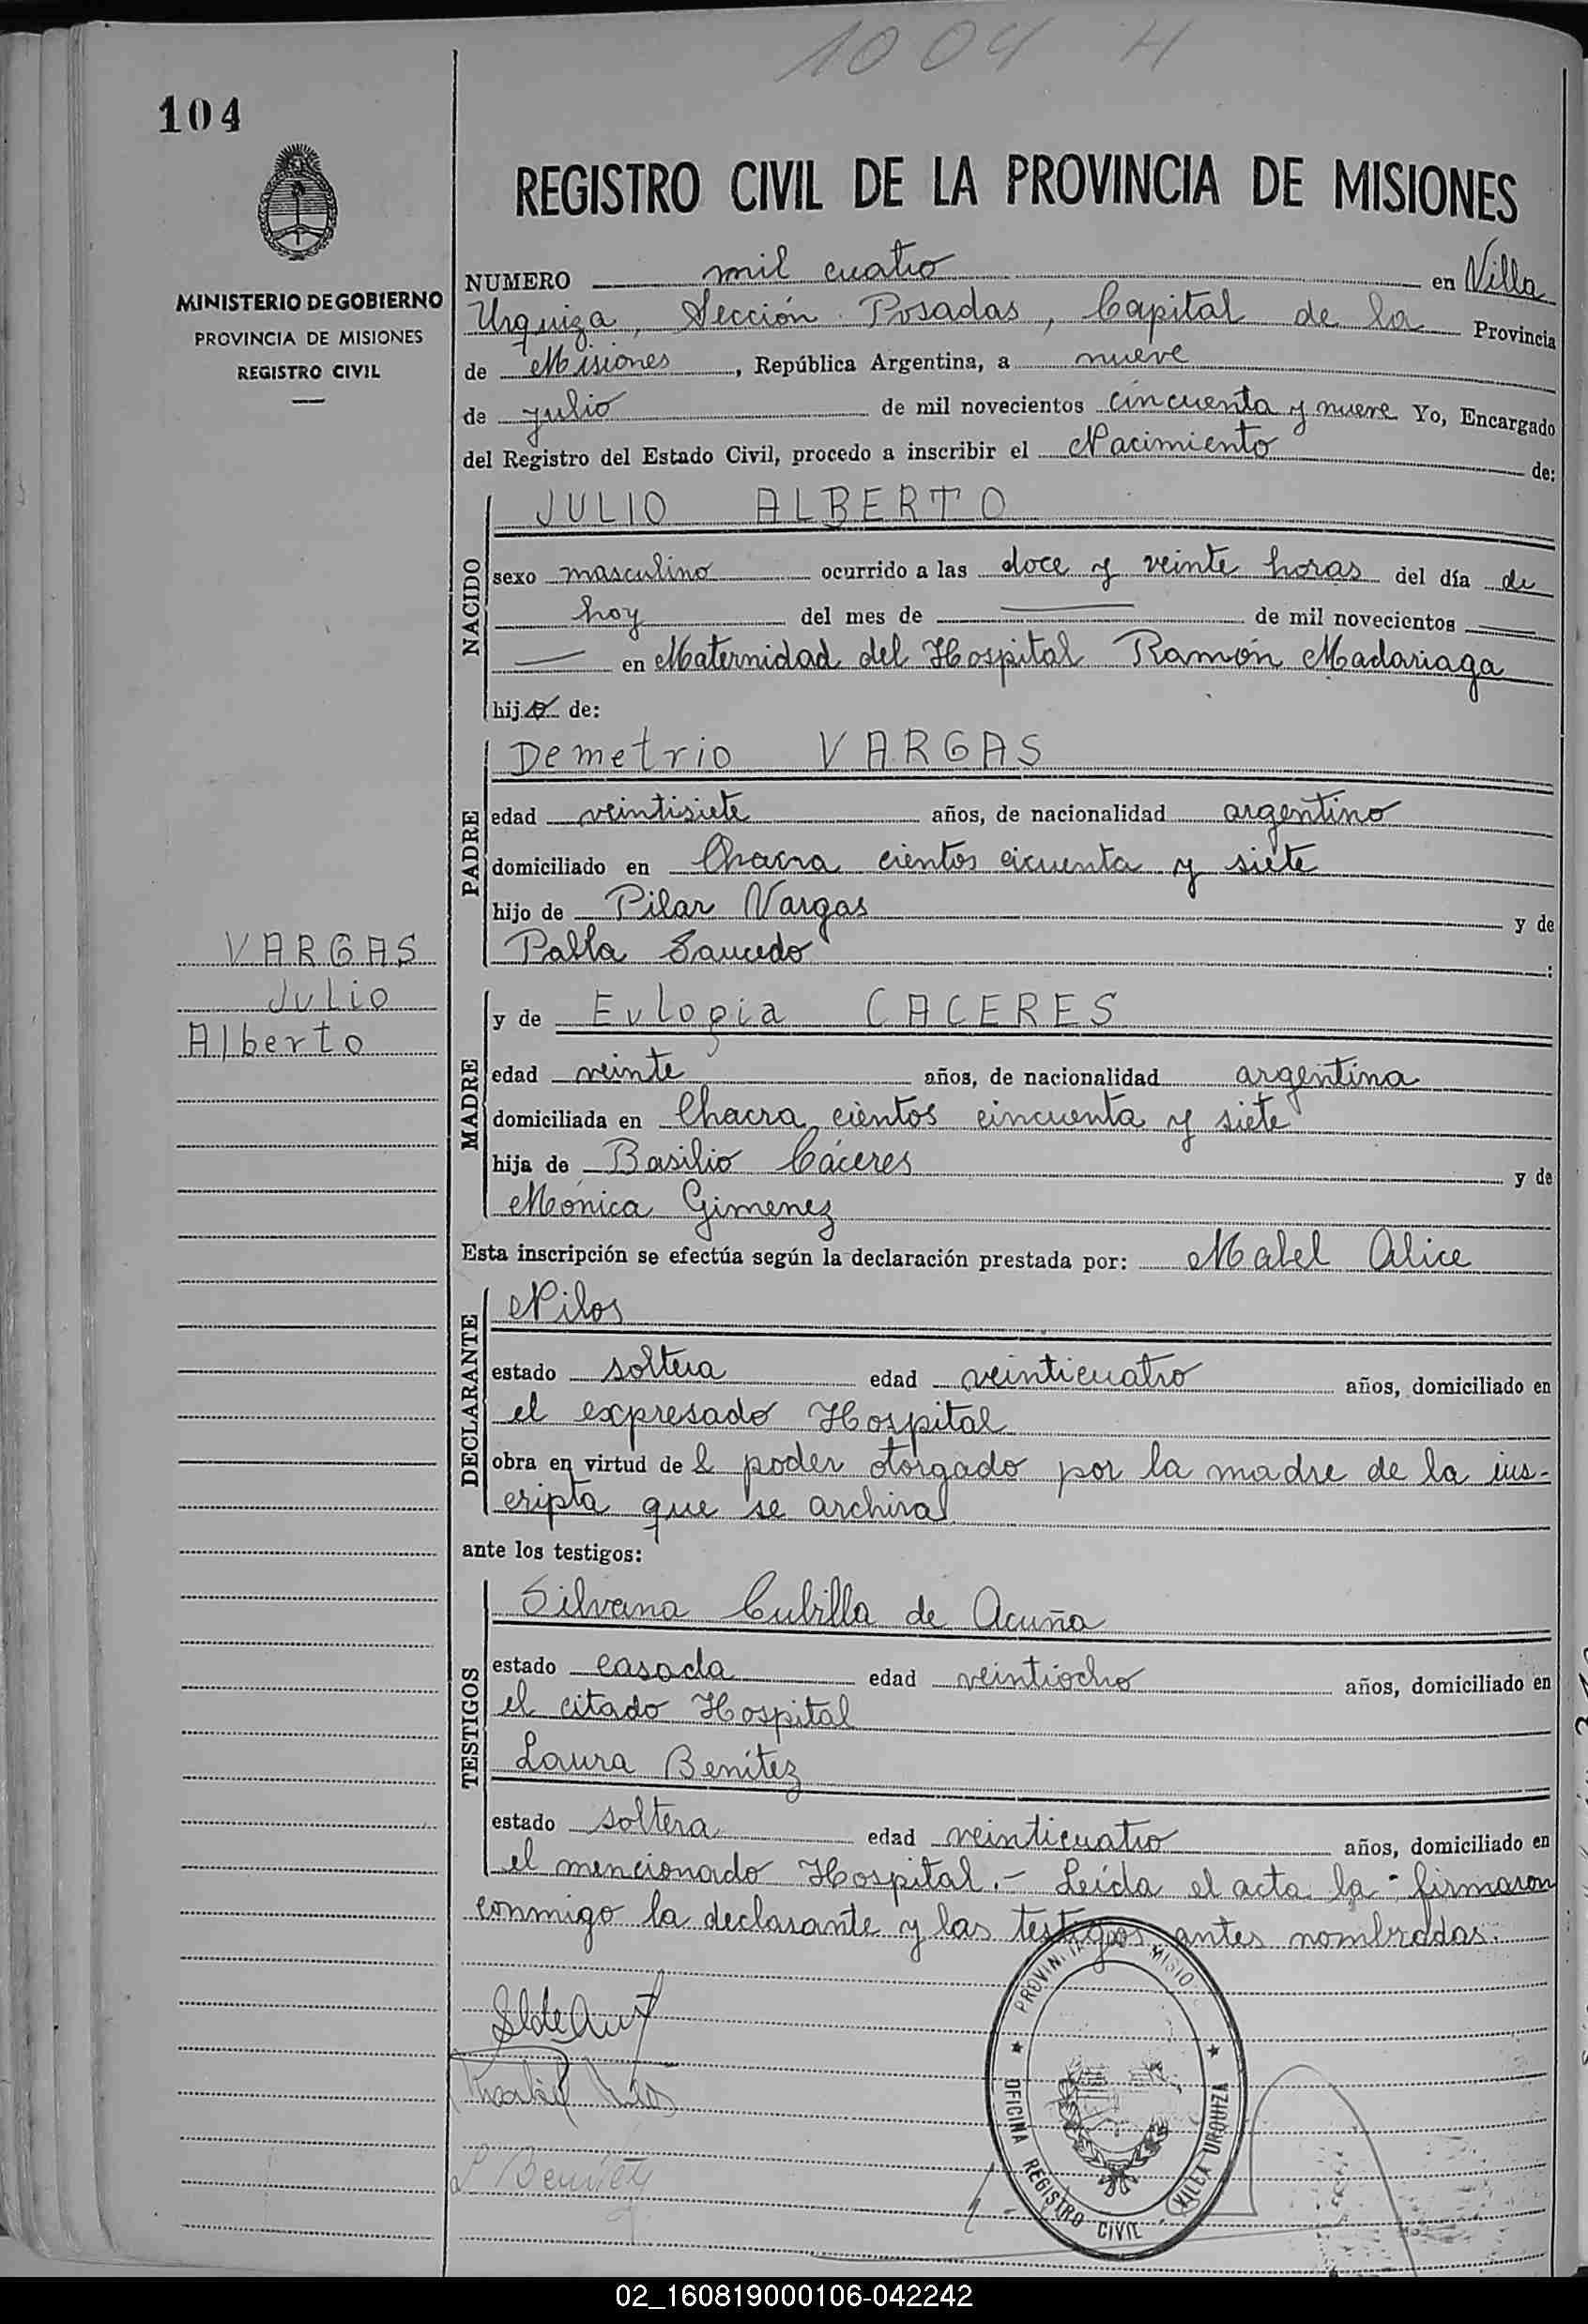 1004 H
104
REGISTRO CIVIL DE LA PROVINCIA DE MISIONES
MINISTERIO DE GOBIERNO
PROVINCIA DE MISIONES
REGISTRO CIVIL
NUMERO mil cuatro en Villa
Urquiza, Sección Posadas, Capital de la Provincia
de Misiones, República Argentina, a nueve
de julio de mil novecientos cincuenta y nueve Yo, Encargado
del Registro del Estado Civil, procedo a inscribir el Nacimiento de:
NACIDO
JULIO ALBERTO
sexo masculino ocurrido a las doce y veinte horas del día de
hoy del mes de — de mil novecientos —
— en Maternidad del Hospital Ramón Madariaga
hijo de:
PADRE
Demetrio VARGAS
edad veintisiete años, de nacionalidad argentino
domiciliado en Chacra cientos cicuenta y siete
hijo de Pilar Vargas y de
Pabla Saucedo :
VARGAS
Julio
Alberto
MADRE
y de Eulogia CACERES
edad veinte años, de nacionalidad argentina
domiciliada en Chacra cientos cincuenta y siete
hija de Basilio Cáceres y de
Mónica Gimenez
Esta inscripción se efectúa según la declaración prestada por: Mabel Alice
DECLARANTE
Nilos
estado soltera edad veinticuatro años, domiciliado en
el expresado Hospital
obra en virtud de l poder otorgado por la madre de la ins-
cripta que se archiva
ante los testigos:
TESTIGOS
Silvana Cubilla de Acuña
estado casada edad veintiocho años, domiciliado en
el citado Hospital
Laura Benítez
estado soltera edad veinticuatro años, domiciliado en
el mencionado Hospital.- Leída el acta la firmaron
conmigo la declarante y las testigos antes nombradas.
PROVINCIA MISIO
OFICINA REGISTRO CIVIL VILLA URQUIZA
L Benítez
02_160819000106-042242